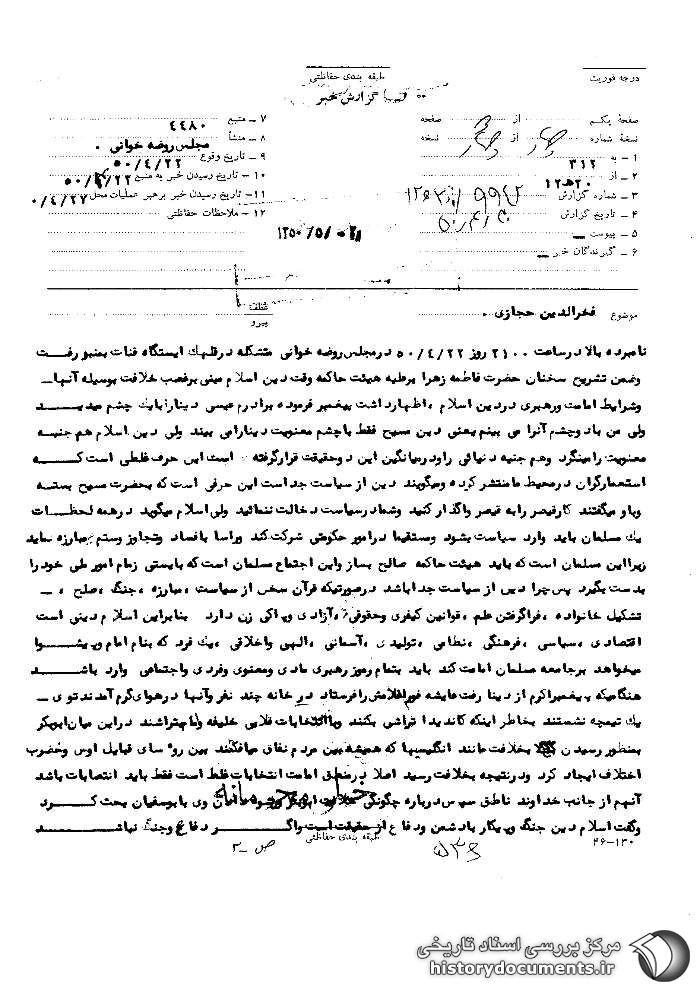 درجه فوریت
طبقه بندی حفاظتی
گزارش خبر
صفحه یکم از ۳ صفحه
نسخه شماره چهار از چهار نسخه
۱ - به ۳۱۲
۲ - از ۲۰ ه‍ ۱۲
۳ - شماره گزارش
۴ - تاریخ گزارش
۵ - پیوست
۶ - گیرندگان خبر
۷ - منبع ۴۴۸۰
۸ - منشأ مجلس روضه خوانی .
۹ - تاریخ وقوع ۵۰/۴/۲۲
۱۰ - تاریخ رسیدن خبر به منبع
۱۱ - تاریخ رسیدن خبر برهبر عملیات محل ۰/۴/۲۷
۱۲ - ملاحظات حفاظتی
موضوع فخرالدین حجازی .
عطف
پیرو
نامبرده بالا در ساعت ۲۱۰۰ روز ۵۰/۴/۲۲ در مجلس روضه خوانی متشکله در قلهك ایستگاه قنات بمنبر رفت
وضمن تشریح سخنان حضرت فاطمه زهرا برعلیه هیئت حاکمه وقت دین اسلام مبنی برغصب خلافت بوسیله آنها
وشرایط امامت ورهبری دردین اسلام ، اظهارداشت پیغمبر فرموده برادرم عیسی دینارا بایك چشم میدید
ولی من بادوچشم آنرا می بینم یعنی دین مسیح فقط باچشم معنویت دینارامی بیند ولی دین اسلام هم جنبه
معنویت رامینگرد وهم جنبه دنیائی راودرمیانگین این دوحقیقت قرارگرفته است این حرف غلطی است کـه
استعمارگران درمحیط مامنتشر کرده ومیگویند دین از سیاست جداست این حرفی است که بحضرت مسیح بسته
وباو میگفتند کارقیصر رابه قیصر واگذار کنید وشمادرسیاست دخالت ننمائید ولی اسلام میگوید درهمه لحظــات
یك مسلمان باید وارد سیاست بشود ومستقیما درامور حکومتی شرکت کند وراسا بافساد وتجاوز وستم مبارزه نماید
زیرااین مسلمان است که باید هیئت حاکمه صالح بساز واین اجتماع مسلمان است که بایستی زمام امور ملی خودرا
بدست بگیرد پس چرا دین از سیاست جداباشد درصورتیکه قرآن سخن از سیاست ، مبارزه ، جنگ ، صلح ،
تشکیل خانواده ، فراگرفتن علم ، قوانین کیفری وحقوقی ، آزادی وپاکی زن دارد بنابراین اسلام دینی است
اقتصادی ، سیاسی ، فرهنگی ، نظامی ، تولیدی ، آسمانی ، الهی واخلاقی ، یك فرد که بنام امام وپیشـوا
میخواهد برجامعه مسلمان امامت کند باید بتمام رموز رهبری مادی ومعنوی وفردی واجتماعی وارد باشـد
هنگامیکه پیغمبراکرم از دینا رفت عایشه فورا غلامش رافرستاد در خانه چند نفر وآنها درهوای گرم آمدند توی
یك تیمچه نشستند بخاطر اینکه کاندیدا تراشی بکنند وباانتخابات قلابی خلیفه ولما بتراشند دراین میان ابوبکر
بمنظور رسیدن بخلافت مانند انگلیسیها که همیشه بین مردم نفاق میافکنند بین روسای قبایل اوس وخضرب
اختلاف ایجاد کرد ودرنتیجه بخلافت رسید اصلا درمنطق امامت انتخابات غلط است فقط باید انتصابات باشد
آنهم از جانب خداوند ناطق سپس درباره چگونگی خلافت وی بابوسفیان بحث کـرد
وگفت اسلام دین جنگ وپیکار بادشمن ودفاع از حقیقت است واگـر دفاع وجنگ نباشـد
خیلی محرمانه
طبقه بندی حفاظتی
۲۶-۱۳۰
ص - ۲
مرکز بررسی اسناد تاریخی
historydocuments.ir